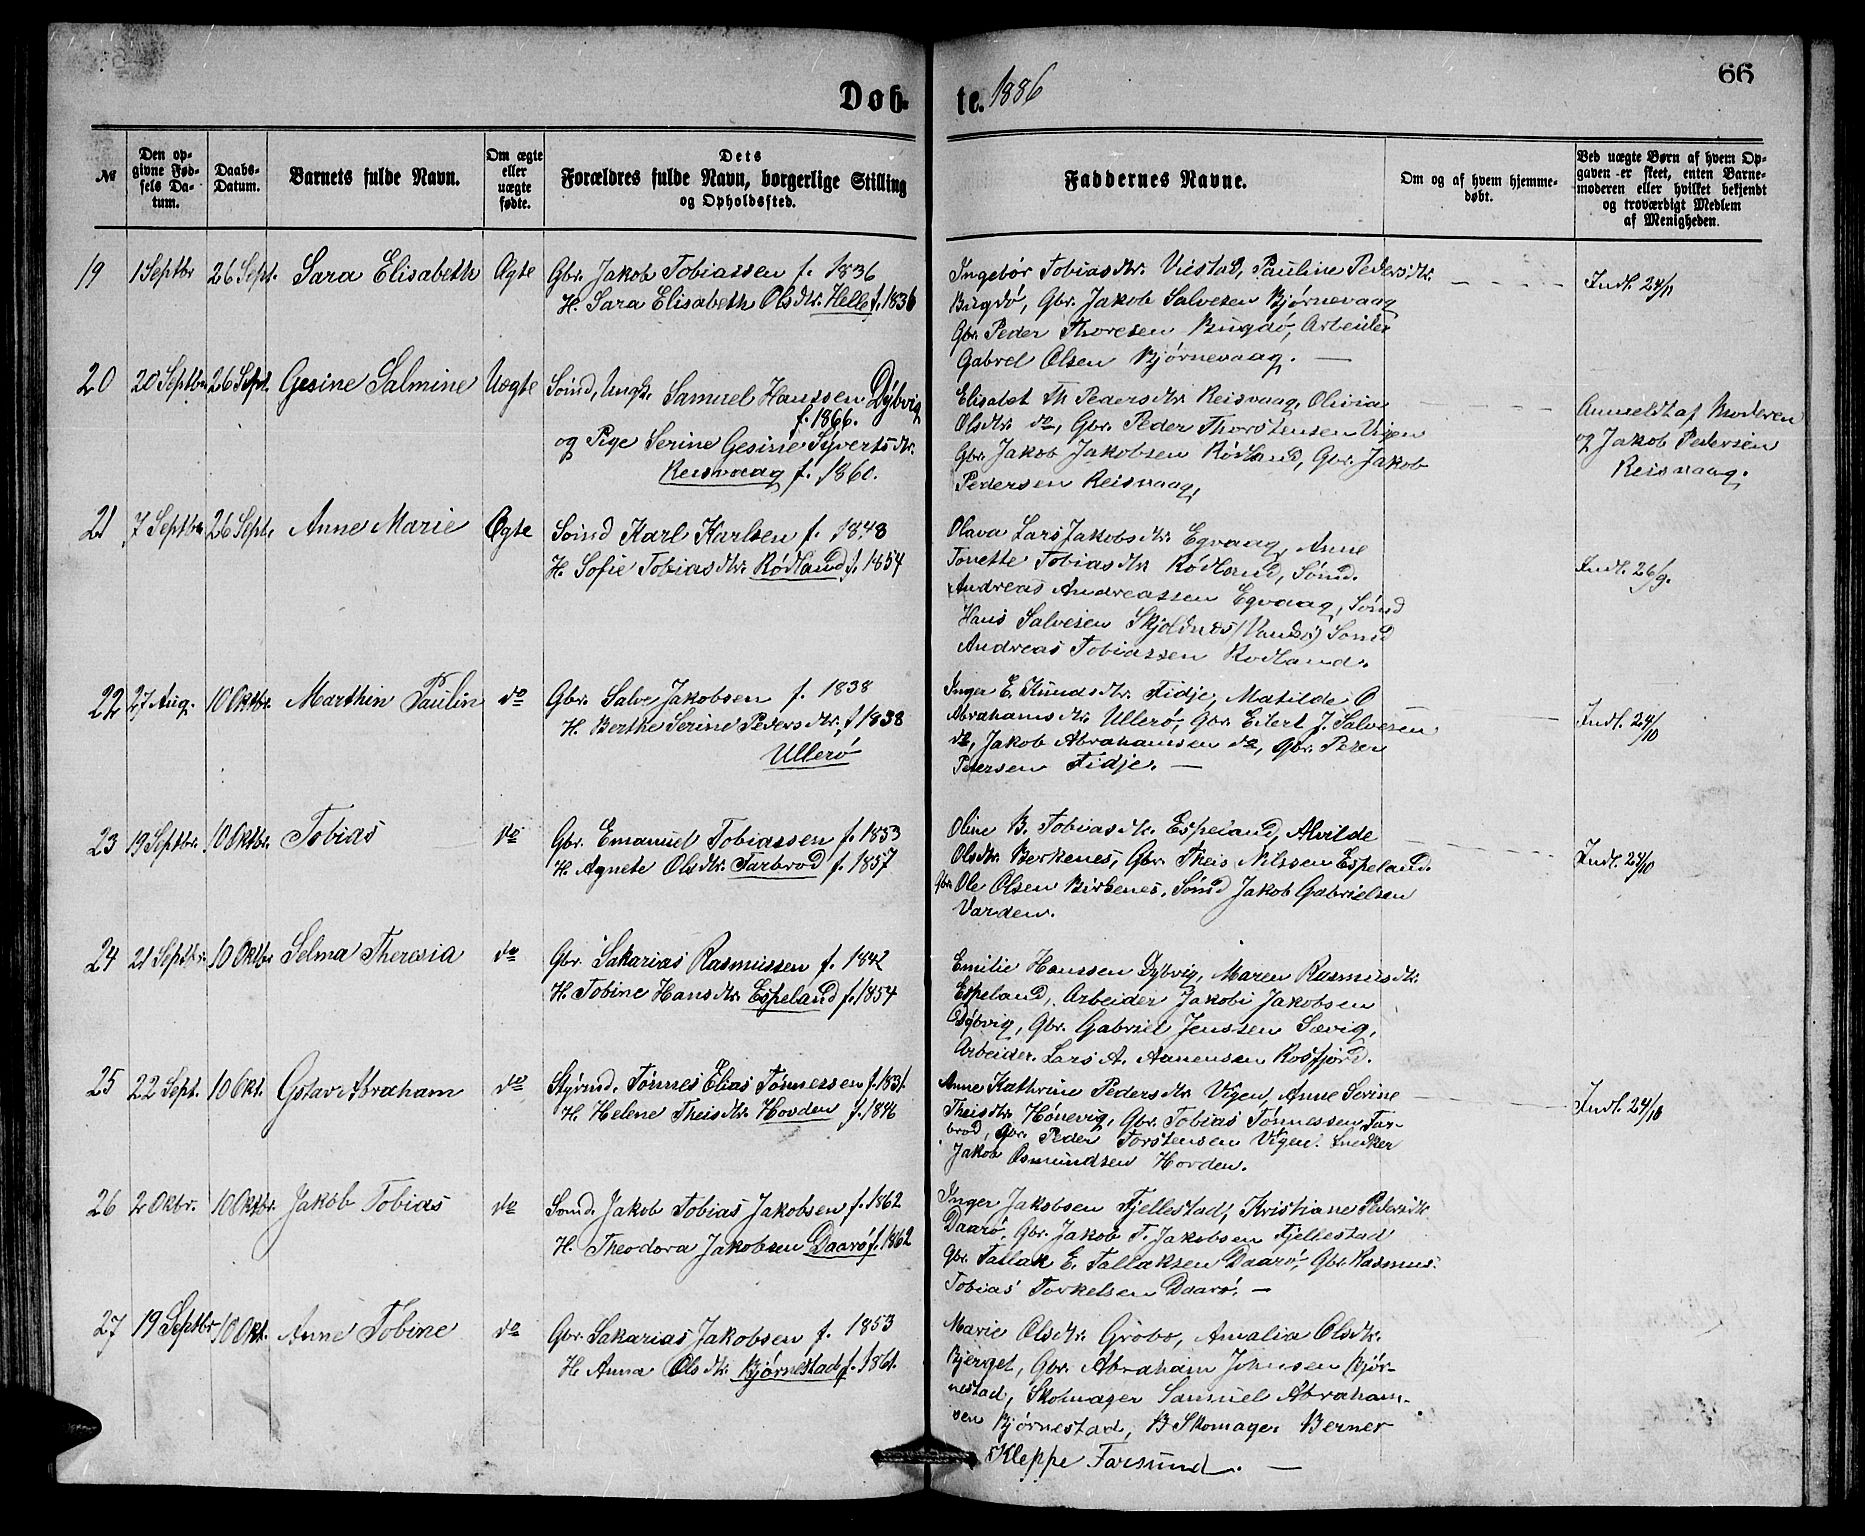 66
Døbte. 1886
№
Den opgivne Fødsels Datum.
Daabs-Datum.
Barnets fulde Navn.
Om ægte eller uægte fødte.
Dets Forældres fulde Navn, borgerlige Stilling og Opholdssted.
Faddernes Navne.
Om og af hvem hjemmedøbt.
Ved uægte Børn af hvem Opgaven er skeet, enten Barnemoderen eller hvilket bekjendt og troværdigt Medlem af Menigheden.
19 1 Septbr 26 Sept. Sara Elisabeth Ægte
Gbr. Jakob Tobiassen f. 1836
H. Sara Elisabeth Olsdtr. Helle f. 1836
Ingebor Tobiasdtr. Viestad, Pauline Pedersdtr.
Bugdø, Gbr. Jakob Salvesen Bjørnevaag
Gbr. Peder Thoresen Bugdø, Arbeider
Gabrel Olsen Bjørnevaag. —
Indl. 24/
20 20 Septbr 26 Sept. Gesine Salmine Uægte
Sømd, Ungk. Samuel Hanssen Dybvig
f. 1866.
og Pige Serine Gesine Syvertsdtr.
Reisvaag f. 1860.
Elisabet Th Pedersdtr. Reisvaag, Olivia
Olsdtr. do, Gbr. Peder Thorstensen Vigen
Gbr. Jakob Jakobsen Rødland, Gbr. Jakob
Pedersen Reisvaag,
Anmeldt af Moderen
og Jakob Pedersen
Reisvaag.
21 7 Septbr 26 Sept. Anne Marie Ægte
Sømd Karl Karlsen f. 1848
H. Sofie Tobiasdtr. Rødland f. 1854
Olava Lars Jakobsdtr. Egvaag, Anne
Tonette Tobiasdtr Rødland, Sømd.
Andreas Andreassen Egvaag, Sømd
Hans Salvesen Skjoldnes (Vandsø) Sømd
Andreas Tobiassen Rødland.
Indl. 26/9.
22 27 Aug. 10 Oktbr. Marthin Paulin do
Gbr. Salve Jakobsen f. 1838
H. Berthe Serine Pedersdtr. f 1838
Ullerø
Inger E. Knudsdtr. Fidje, Matilde O
Abrahamsdtr. Ullerø, Gbr. Eilert J. Salvesen
do, Jakob Abrahamsen do, Gbr. Peder
Petersen Fidje. —
Indl. 24/10
23 19 Septbr. 10 Oktbr. Tobias do
Gbr. Emanuel Tobiassen f. 1853
H. Agnete Olsdtr. Tarbrod f. 1857
Oline B. Tobiasdtr. Espeland, Alvilde
Olsdtr. Berkenes, Gbr. Theis Nilssen Espeland.
Gbr. Ole Olsen Birkenes, Sømd Jakob Gabrielsen
Varden.
Indl. 24/10
24 21 Septbr. 10 Oktbr Selma Theresia do
Gbr. Sakarias Rasmussen f. 1842
H. Tobine Hansdtr. Espeland f. 1854
Emilie Hanssen Dybvig, Maren Rasmusdtr.
Espeland, Arbeider Jakob Jakobsen
Dybvig, Gbr. Gabriel Jenssen Sævig,
Arbeider. Lars A. Aanensen Rosfjord.
25 22 Sept. 10 Okt. Gstav Abraham do
Styrmd. Tønnes Elias Tønnessen f. 1831.
H. Helene Theisdtr. Hovden f. 1846
Anne Kathrine Pedersdtr Vigen, Anne Serine
Theisdtr. Hønevig, Gbr. Tobias Tønnessen Tar-
brod, Gbr. Peder Torstensen Vigen. Snekker
Jakob Osmundsen Hovden.
Indl. 24/10
26 2 Oktbr. 10 Oktbr. Jakob Tobias do
Sømd. Jakob Tobias Jakobsen f. 1862
H. Theodora Jakobsen Daarø f. 1862
Inger Jakobsen Fjellestad, Kristiane Pedersdtr
Daarø, Gbr. Jakob T. Jakobsen Fjellestad
Gbr. Tallak E. Tallaksen Daarø, Gbr. Rasmus
Tobias Torkelsen Daarø. —
27 19 Septbr 10 Okt. Anne Tobine do
Gbr. Sakarias Jakobsen f. 1853
H. Anna Olsdtr. Bjørnestad f. 1861.
Marie Olsdtr. Grobo, Amalia Olsdtr.
Bjerget, Gbr. Abraham Johnsen Bjør-
nestad, Skomager Samuel Abraham-
sen Bjørnestad, B Skomager Berner
Kleppe Farsund. —